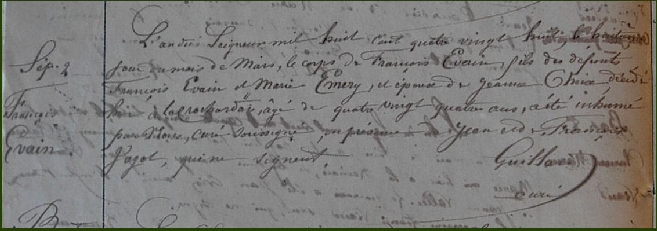 Sép. 2
François
Evain
L'an du Seigneur mil huit cent quatre vingt huit, le huitième
jour du mois de Mars, le corps de François Evain, fils des défunts
François Evain et Marie Emery, et époux de Jeanne décédé
hier à la âgé de quatre vingt quatre ans, a été inhumé
par Nous, curé soussigné en présence de Jean et de François
Pagot, qui ne signent
Guillo
curé